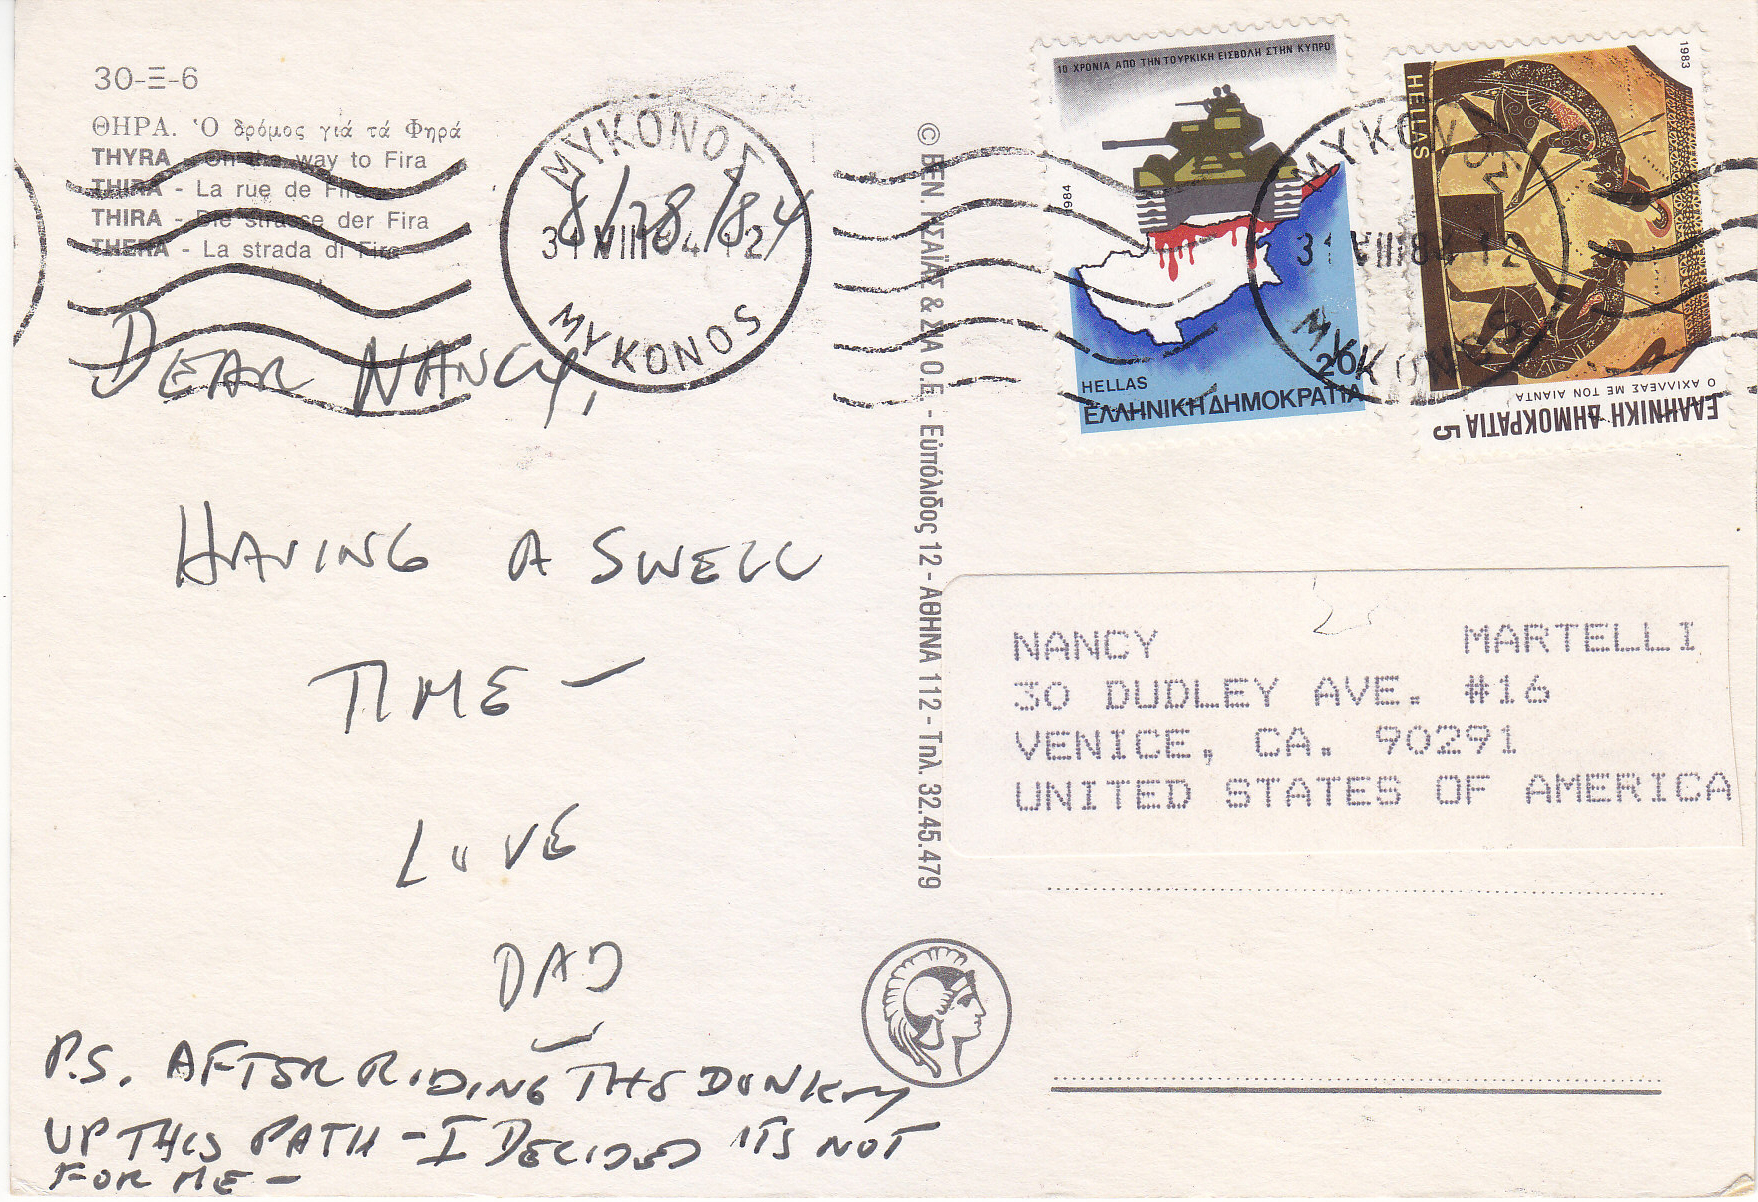 30-Ξ-6
ΘΗΡΑ. Ὁ δρόμος γιά τά Φηρά
THYRA - On the way to Fira
THIRA - La rue de Fira
THIRA - Die strasse der Fira
THERA - La strada di Fira
ΜΥΚΟΝΟΣ
31 VIII 84 12
MYKONOS
8/28/84
DEAR NANCY,
HAVING A SWELL
TIME -
LOVE
DAD
P.S. AFTER RIDING THE DONKEY
UP THIS PATH - I DECIDED IT'S NOT
FOR ME -
© ΒΕΝ. ΚΣΑΪΑΣ & ΣΙΑ Ο.Ε. - Εὐπόλιδος 12 - ΑΘΗΝΑ 112 - Τηλ. 32.45.479
10 ΧΡΟΝΙΑ ΑΠΟ ΤΗΝ ΤΟΥΡΚΙΚΗ ΕΙΣΒΟΛΗ ΣΤΗΝ ΚΥΠΡΟ
1984
20
HELLAS
ΕΛΛΗΝΙΚΗ ΔΗΜΟΚΡΑΤΙΑ
1983
HELLAS
Ο ΑΧΙΛΛΕΑΣ ΜΕ ΤΟΝ ΑΙΑΝΤΑ
ΕΛΛΗΝΙΚΗ ΔΗΜΟΚΡΑΤΙΑ 5
ΜΥΚΟΝΟΣ
31 VIII 84 12
MYKONOS
NANCY MARTELLI
30 DUDLEY AVE. #16
VENICE, CA. 90291
UNITED STATES OF AMERICA